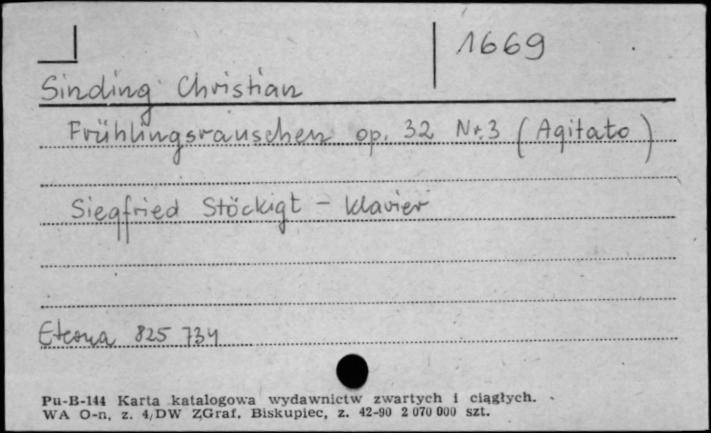 1669
Sinding Christian
Frühlingsrauschen op. 32 Nr. 3 (Agitato)
Siegfried Stöckigt - Klavier
Eterna 825 734
Pu-B-144 Karta katalogowa wydawnictw zwartych i ciągłych.
WA O-n, z. 4/DW ZGraf. Biskupiec, z. 42-90 2 070 000 szt.